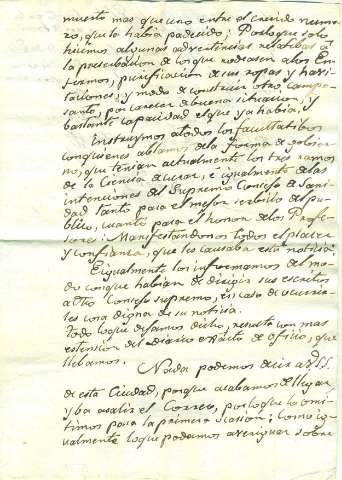 muerto mas que uno entre el crecido nume=
ro, que lo habia padecido; Por lo que solo
hicimos algunas advertencias relatibas á
la preserbacion de los que rodeasen a los En=
fermos, purificacion de sus ropas y havi=
taciones; y modo de construir otro campo=
santo, por carecer de buena situacion, y
bastante capacidad el que ya habia.
Instruymos a todos los facultatibos
con quienes ablamos de la forma de gobier=
no, que tenian actualmente los tres ramos
de la Ciencia de curar, é igualmente de las
intenciones del Supremo Consejo de Sani=
dad tanto para el mejor serbicio del pu=
blico, cuanto para el honor de los Profe=
sores: Manifestandonos todos el placer
y confianza, que les causaba esta noticia.
Egualmente los informamos del mo=
do con que habian de dirigir sus escritos
al tro Consejo supremo, en caso de ocurrir=
les cosa digna de su noticia.
Todo lo que dejamos dicho, resulta con mas
estension del Diario ó Acto de oficio, que
llebamos.
Nada podemos decir a VSS.
de esta Ciudad, porque acabamos de llegar
y ba a salir el Correo, por lo que lo omi=
timos para la primera ocasion; como ig=
ualmente lo que podamos averiguar sobre